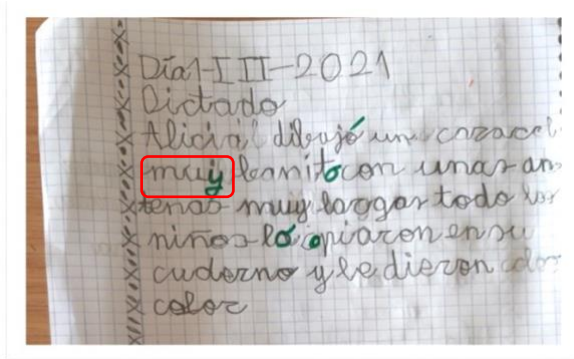 Día1-III-2021
Dictado
Alicia dibujó un cazacol
muy bonito con unas an
tenas muy lazgas todo los
niños lo opiazon en su
cudezno y le diezon coloz
coloz